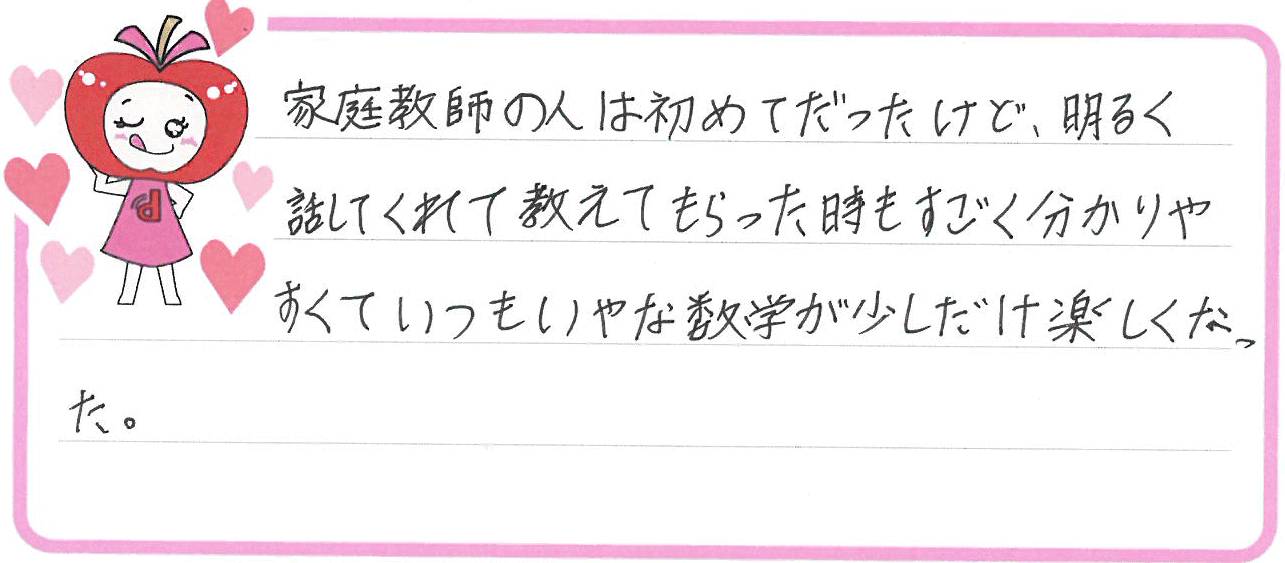 家庭教師の人は初めてだったけど、明るく
話してくれて教えてもらった時もすごく分かりや
すくていつもいやな数学が少しだけ楽しくなっ
た。